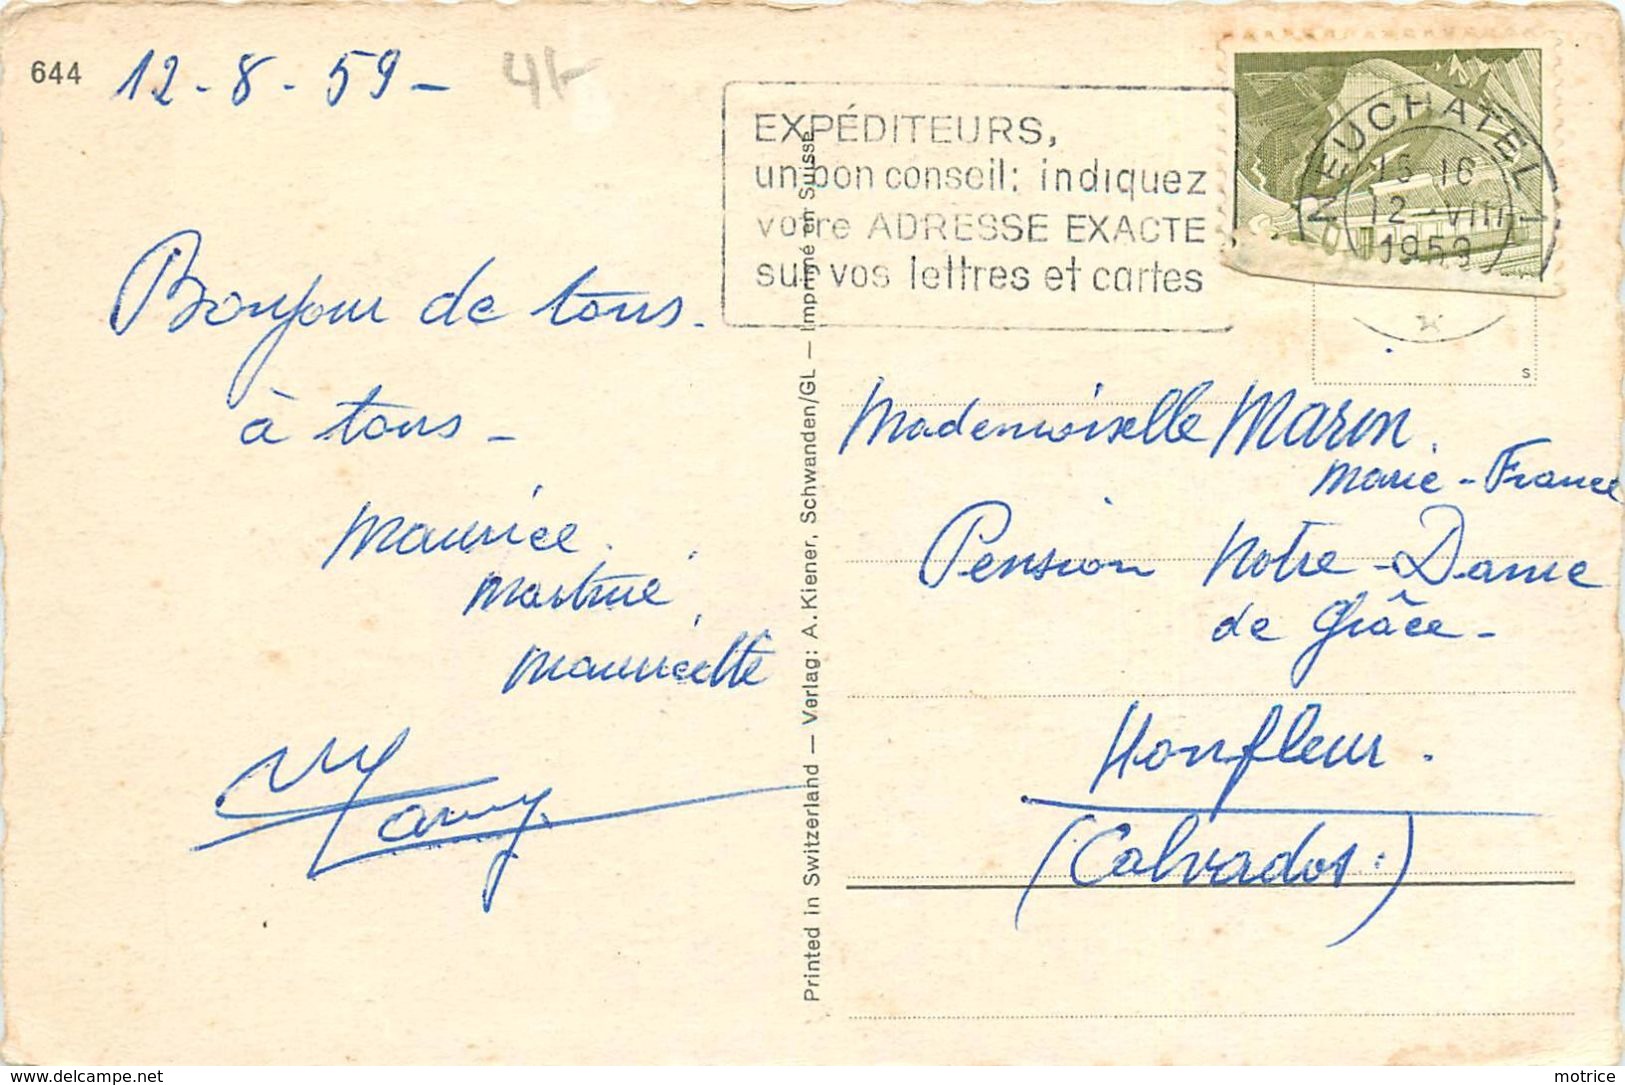 644
12-8-59-
41-
EXPÉDITEURS,
un bon conseil: indiquez
votre ADRESSE EXACTE
sur vos lettres et cartes
NEUCHATEL 1
15-16
12-VIII
1959
s
Bonjour de tous.
à tous -
Maurice.
Martine,
Mauricette
Printed in Switzerland — Verlag: A. Kiener, Schwanden/GL — Imprimé en Suisse
Mademoiselle Marin.
Marie-France
Pension Notre-Dame
de Grâce-
Honfleur.
(Calvados.)
www.delcampe.net
motrice